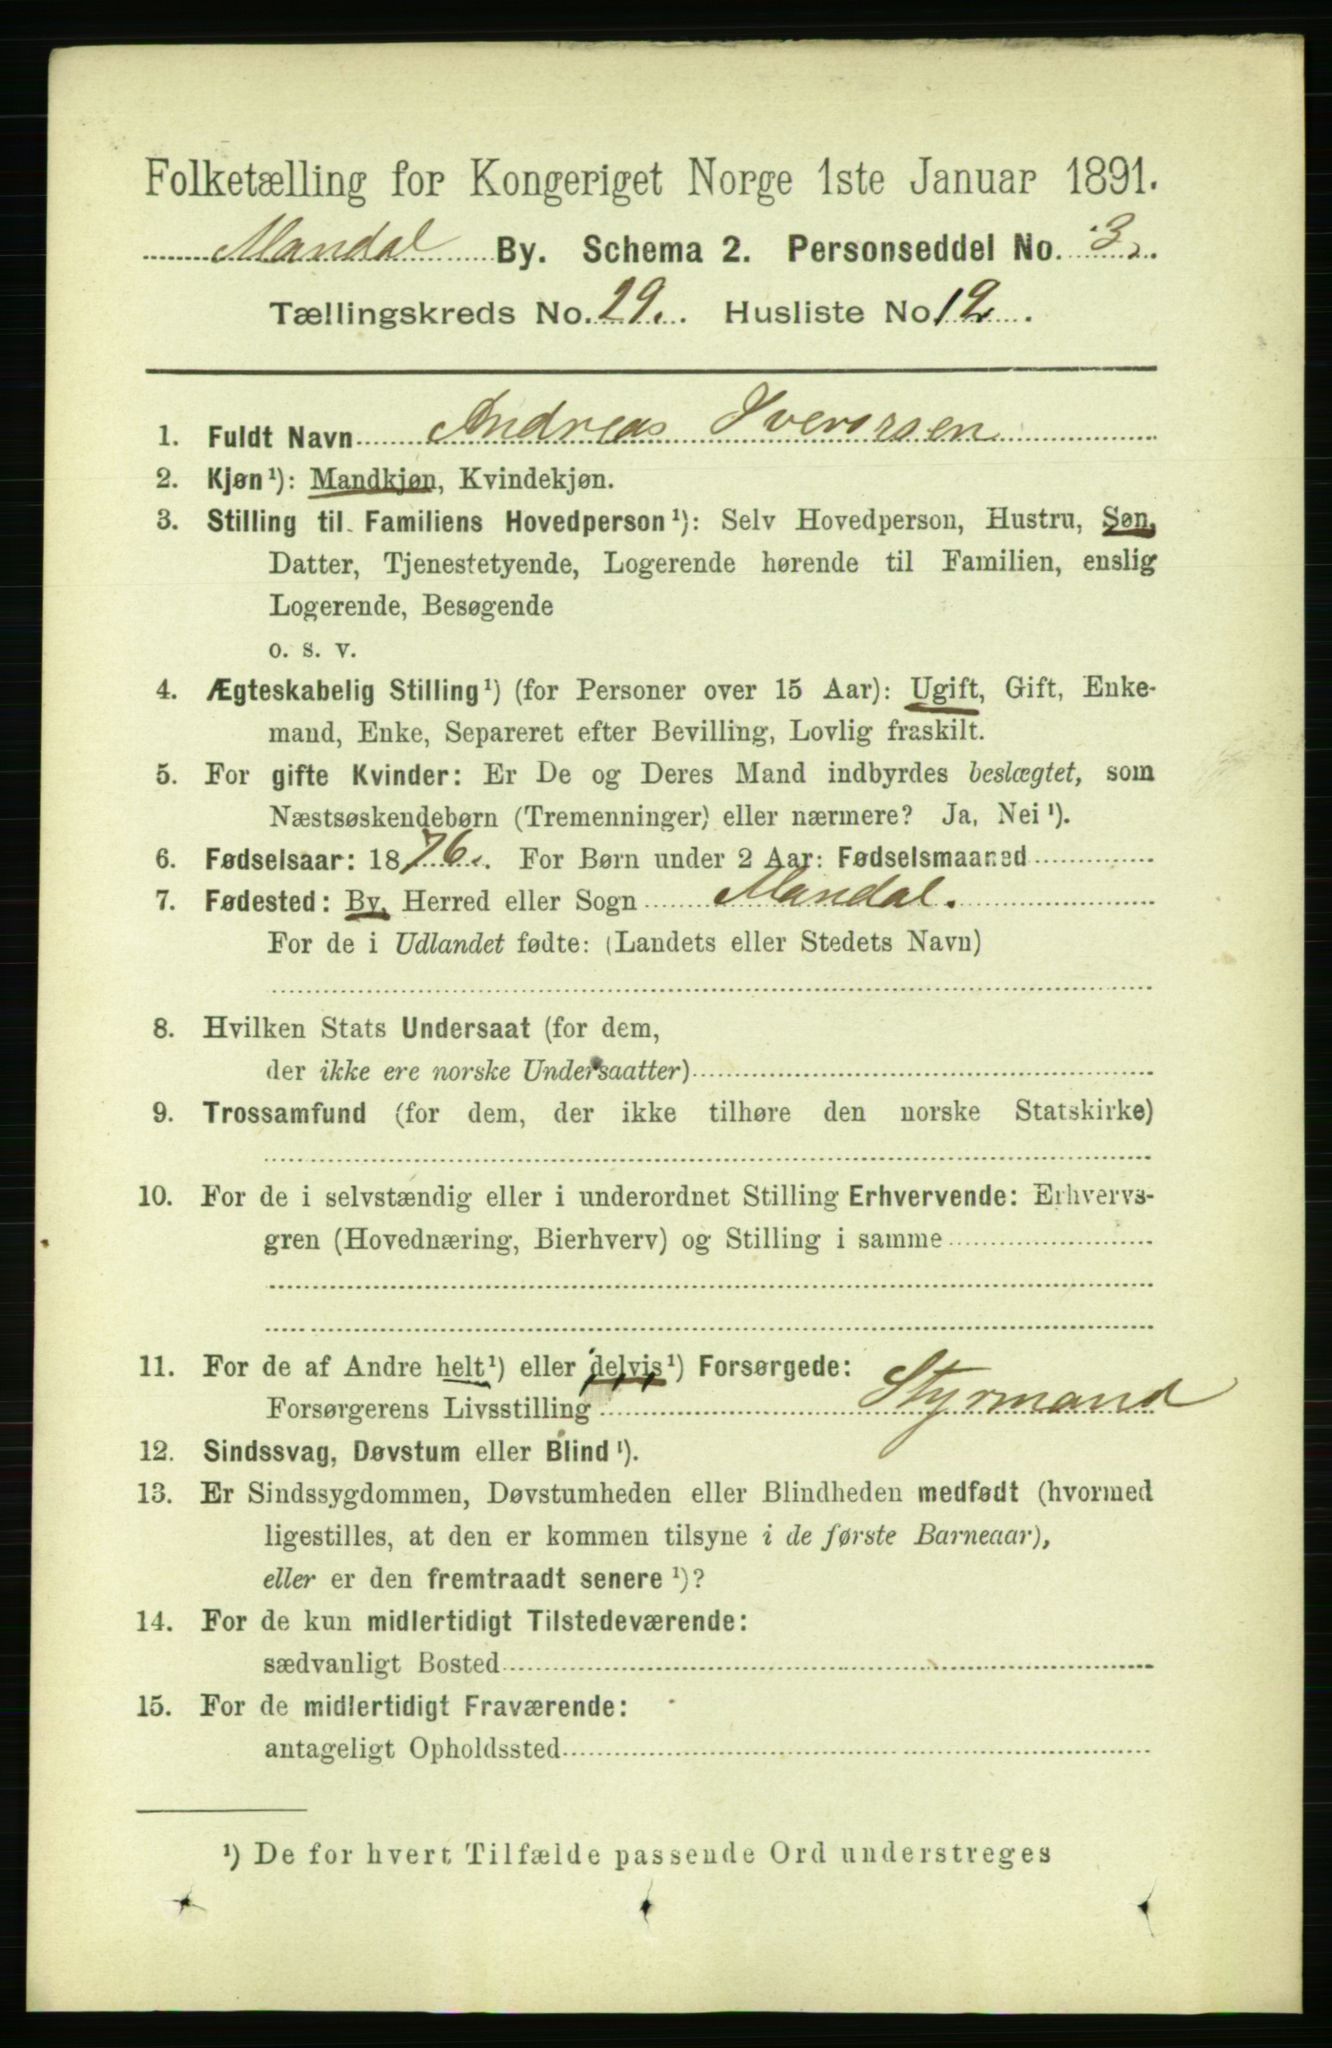 Folketælling for Kongeriget Norge 1ste Januar 1891.
Mandal By. Schema 2. Personseddel No. 3.
Tællingskreds No. 29. Husliste No 12.
1. Fuldt Navn Andreas Iverrsen
2. Kjøn¹): Mandkjøn, Kvindekjøn.
3. Stilling til Familiens Hovedperson¹): Selv Hovedperson, Hustru, Søn,
Datter, Tjenestetyende, Logerende hørende til Familien, enslig
Logerende, Besøgende
o. s. v.
4. Ægteskabelig Stilling¹) (for Personer over 15 Aar): Ugift, Gift, Enke-
mand, Enke, Separeret efter Bevilling, Lovlig fraskilt.
5. For gifte Kvinder: Er De og Deres Mand indbyrdes beslægtet, som
Næstsøskendebørn (Tremenninger) eller nærmere? Ja, Nei¹).
6. Fødselsaar: 1876. For Børn under 2 Aar: Fødselsmaaned
7. Fødested: By, Herred eller Sogn Mandal.
For de i Udlandet fødte: (Landets eller Stedets Navn)
8. Hvilken Stats Undersaat (for dem,
der ikke ere norske Undersaatter)
9. Trossamfund (for dem, der ikke tilhøre den norske Statskirke)
10. For de i selvstændig eller i underordnet Stilling Erhvervende: Erhvervs-
gren (Hovednæring, Bierhverv) og Stilling i samme
11. For de af Andre helt¹) eller delvis¹) Forsørgede:
Forsørgerens Livsstilling Styrmand
12. Sindssvag, Døvstum eller Blind¹).
13. Er Sindssygdommen, Døvstumheden eller Blindheden medfødt (hvormed
ligestilles, at den er kommen tilsyne i de første Barneaar),
eller er den fremtraadt senere¹)?
14. For de kun midlertidigt Tilstedeværende:
sædvanligt Bosted
15. For de midlertidigt Fraværende:
antageligt Opholdssted
¹) De for hvert Tilfælde passende Ord understreges